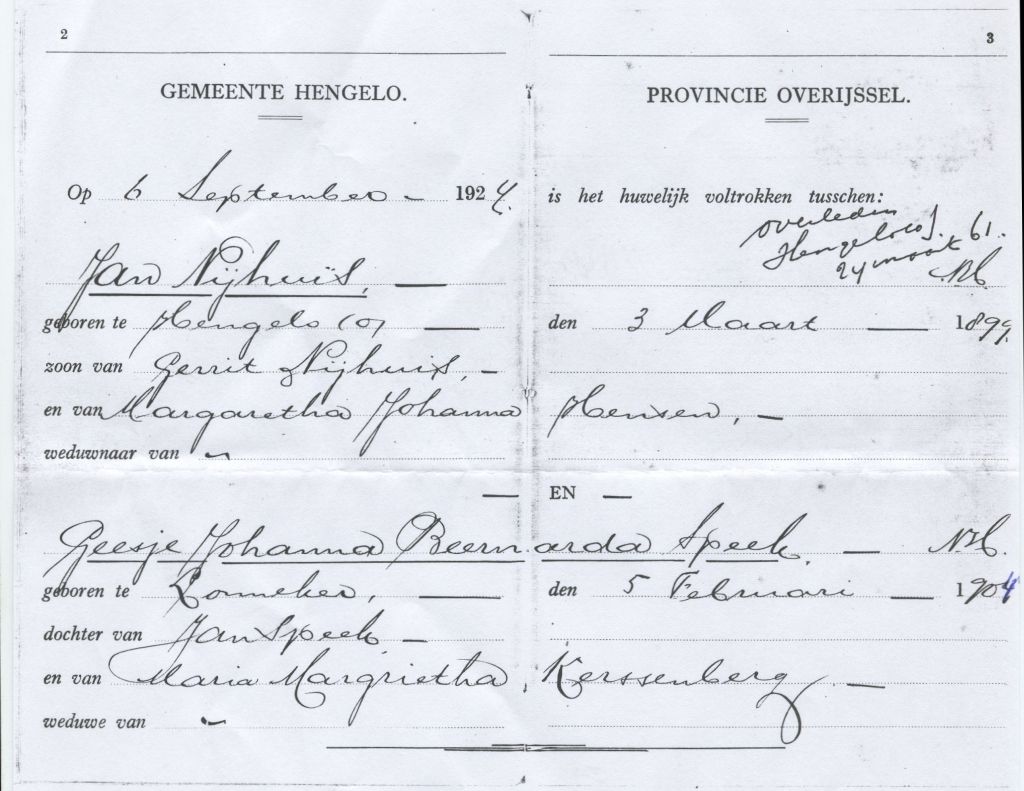 2
3
GEMEENTE HENGELO.
PROVINCIE OVERIJSSEL.
Op 6 September 1924. is het huwelijk voltrokken tusschen:
overleden
Hengelo(o). 61.
24 maart
Jan Nijhuis, N.H.
geboren te Hengelo (o) den 3 Maart 1899.
zoon van Gerrit Nijhuis,
en van Margaretha Johanna Hensen,
weduwnaar van
EN
Geesje Johanna Beernarda Speek, N.H.
geboren te Lonneker, den 5 Februari 1904
dochter van Jan Speek
en van Maria Margrietha Kerssenberg
weduwe van